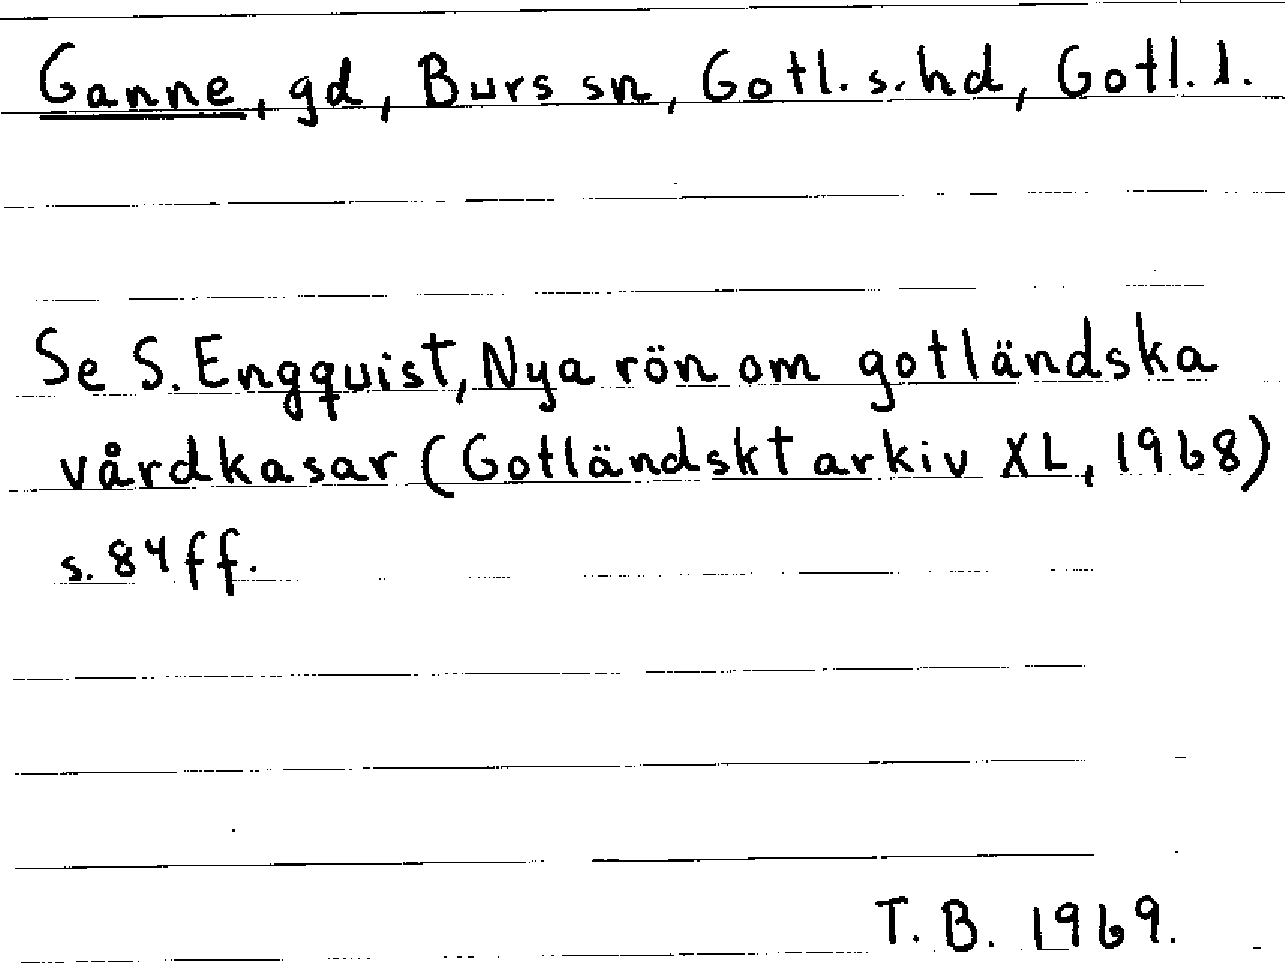 Ganne, gd, Burs sn, Gotl. s. hd, Gotl. l.
Se S. Engquist, Nya rön om gotländska
vårdkasar (Gotländskt arkiv XL, 1968)
s. 84 ff.
T. B. 1969.